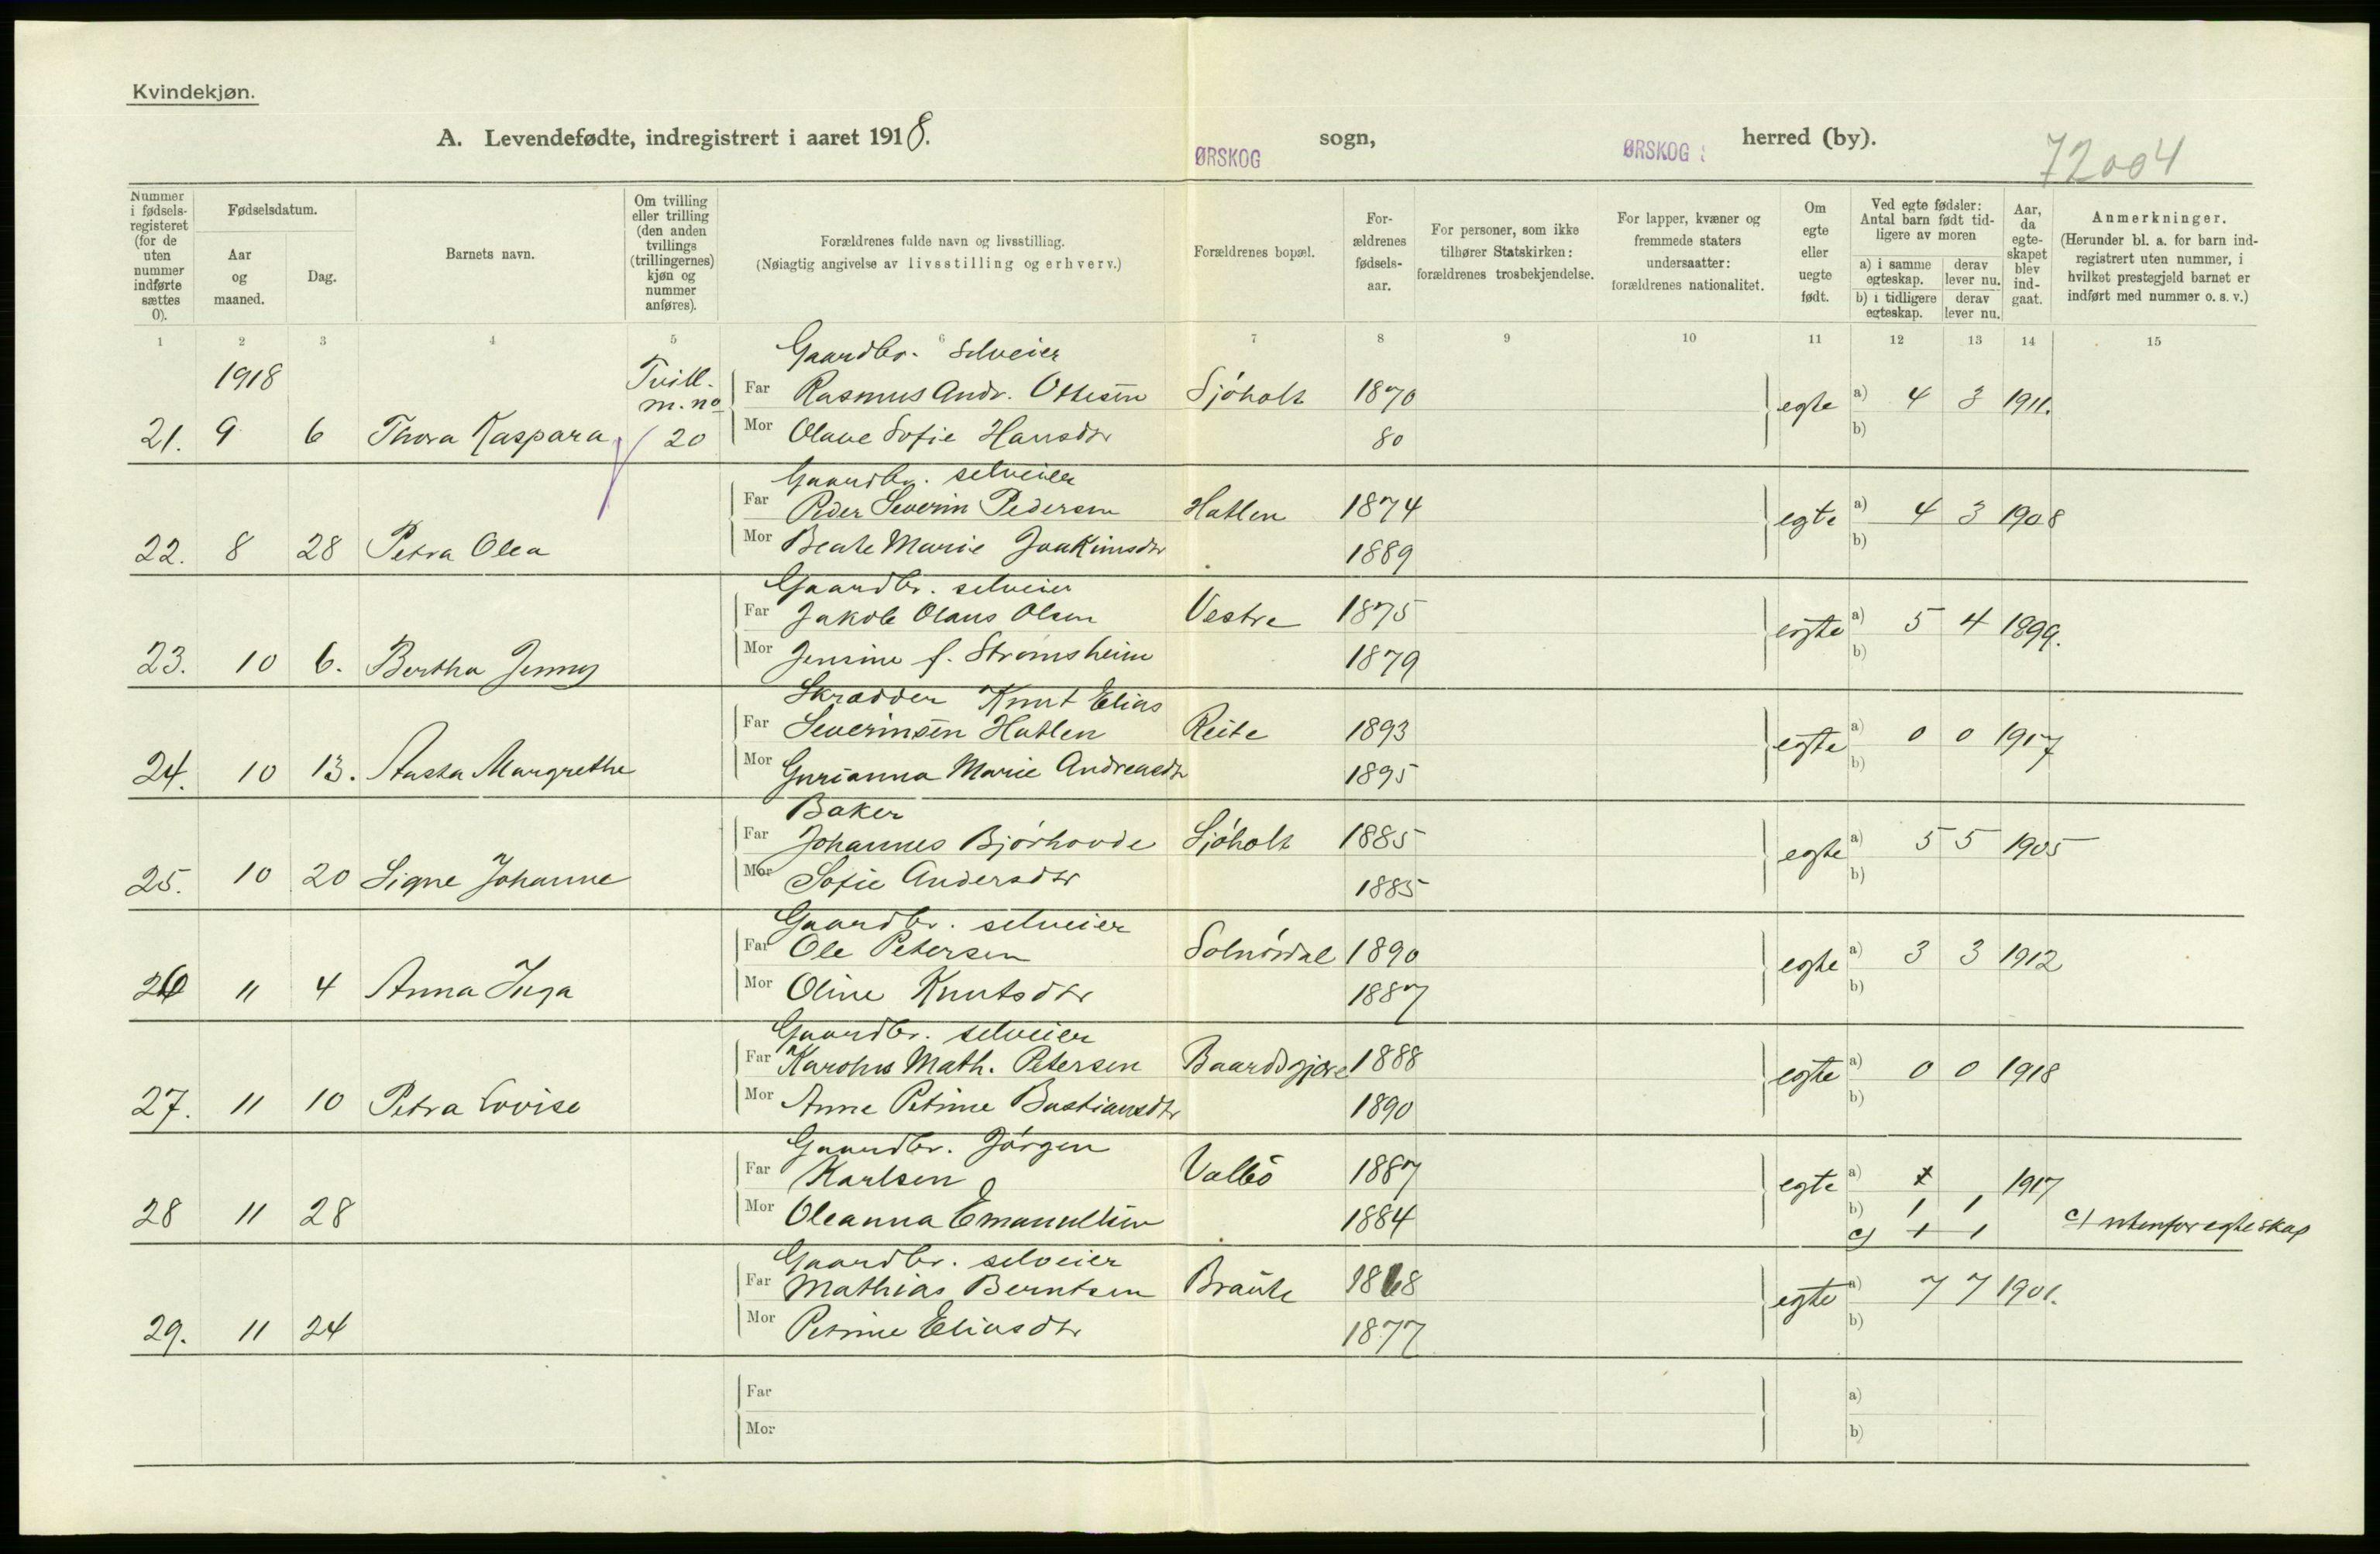 Kvindekjøn.
A. Levendefødte, indregistrert i aaret 1918.
ØRSKOG sogn, ØRSKOG herred (by).
72004
Nummer i fødsels-registeret (for de uten nummer indførte sættes 0).
Fødselsdatum.
Aar og maaned.
Dag.
Barnets navn.
Om tvilling eller trilling (den anden tvillings (trillingernes) kjøn og nummer anføres).
Forældrenes fulde navn og livsstilling.
(Nøiagtig angivelse av livsstilling og erhverv.)
Forældrenes bopæl.
For-ældrenes fødsels-aar.
For personer, som ikke tilhører Statskirken: forældrenes trosbekjendelse.
For lapper, kvæner og fremmede staters undersaatter: forældrenes nationalitet.
Om egte eller uegte født.
Ved egte fødsler: Antal barn født tid-ligere av moren
a) i samme egteskap.
derav lever nu.
b) i tidligere egteskap.
derav lever nu.
Aar, da egte-skapet blev ind-gaat.
Anmerkninger.
(Herunder bl. a. for barn ind-registrert uten nummer, i hvilket prestegjeld barnet er indført med nummer o. s. v.)
1 2 3 4 5 6 7 8 9 10 11 12 13 14 15
1918
Gaardbr. Selveier
Tvill. m. no
Far Rasmus Andr. Ottesen Sjøholt 1870 egte a) 4 3 1911.
21. 9 6 Thora Kaspara 20 Mor Olave Sofie Hansdtr 80 b)
Gaardbr. selveier
Far Peder Severin Pedersen Hatlen 1874 egte a) 4 3 1908
22. 8 28 Petra Olea Mor Beate Marie Joakimsdtr 1889 b)
Gaardbr. selveier
Far Jakob Olaus Olsen Vestre 1875 egte a) 5 4 1899.
23. 10 6. Bertha Jenny Mor Jensine f. Strømsheim 1879 b)
Skrædder Knut Elias
Far Severinsen Hatlen Reite 1893 egte a) 0 0 1917
24. 10 13. Aasta Margrethe Mor Gurianna Marie Andreasdtr 1895 b)
Baker
Far Johannes Bjørhovde Sjøholt 1885 egte a) 5 5 1905
25. 10 20 Signe Johanne Mor Sofie Andersdtr 1885 b)
Gaardbr. selveier
Far Ole Petersen Solnørdal 1890 egte a) 3 3 1912
26 11 4 Anna Inga Mor Oline Knutsdtr 1887 b)
Gaardbr. selveier
Far Karolus Math. Petersen Baardsgjære 1888 egte a) 0 0 1918
27. 11 10 Petra Lovise Mor Anne Petrine Bastiansdtr 1890 b)
Gaardbr. Jørgen
Far Karlsen Valbø 1887 egte a) 1917
28 11 28 Mor Oleanna Emanuelsen 1884 b) 1 1
c) 1 1 c) utenfor egteskap
Gaardbr. selveier
Far Mathias Berntsen Braute 1868 egte a) 7 7 1901.
29. 11 24 Mor Petrine Eliasdtr 1877 b)
Far a)
Mor b)